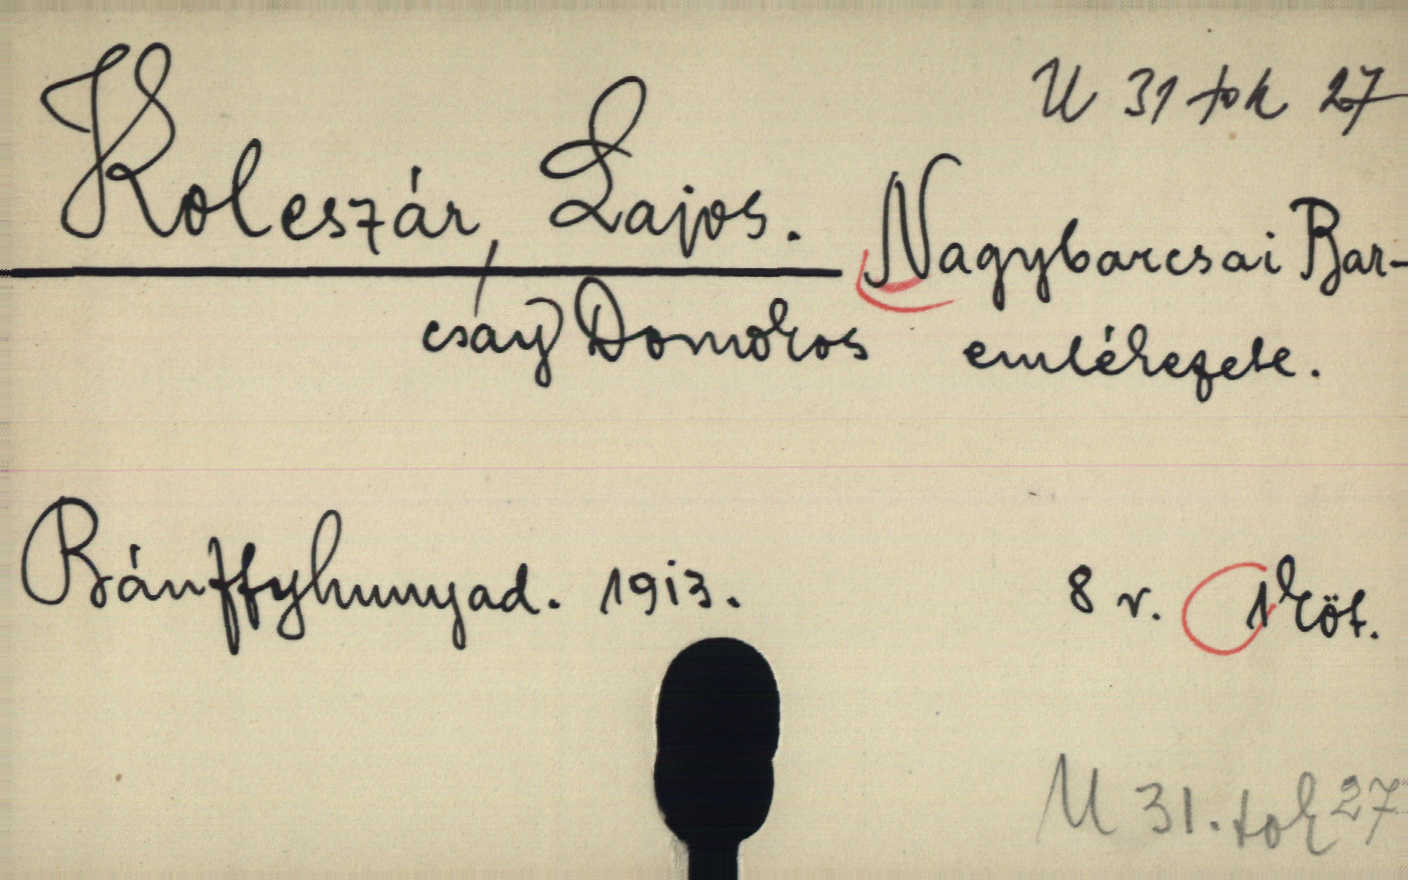 U 31 tok 27
Koleszár, Lajos. Nagybarcsai Bar-
csay Domokos emlékezete.
Bánffyhunyad. 1913. 8 r. 1 köt.
U 31. tok 27